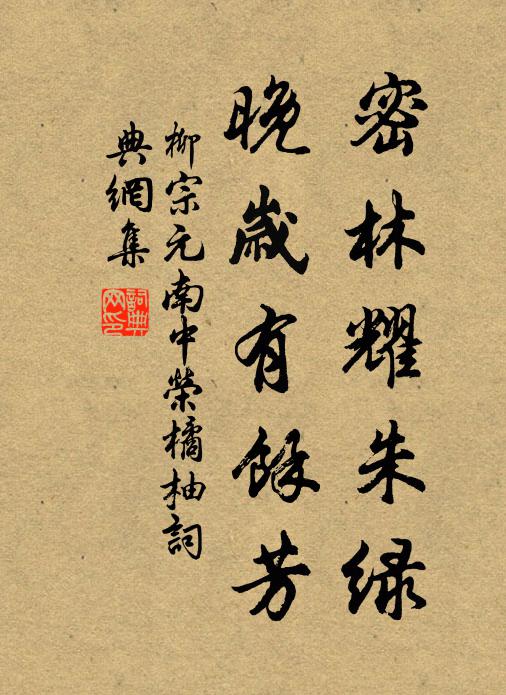 密林耀朱绿
晚歲有餘芳
柳宗元南中榮橘柚詞
典網集
詞典
网印